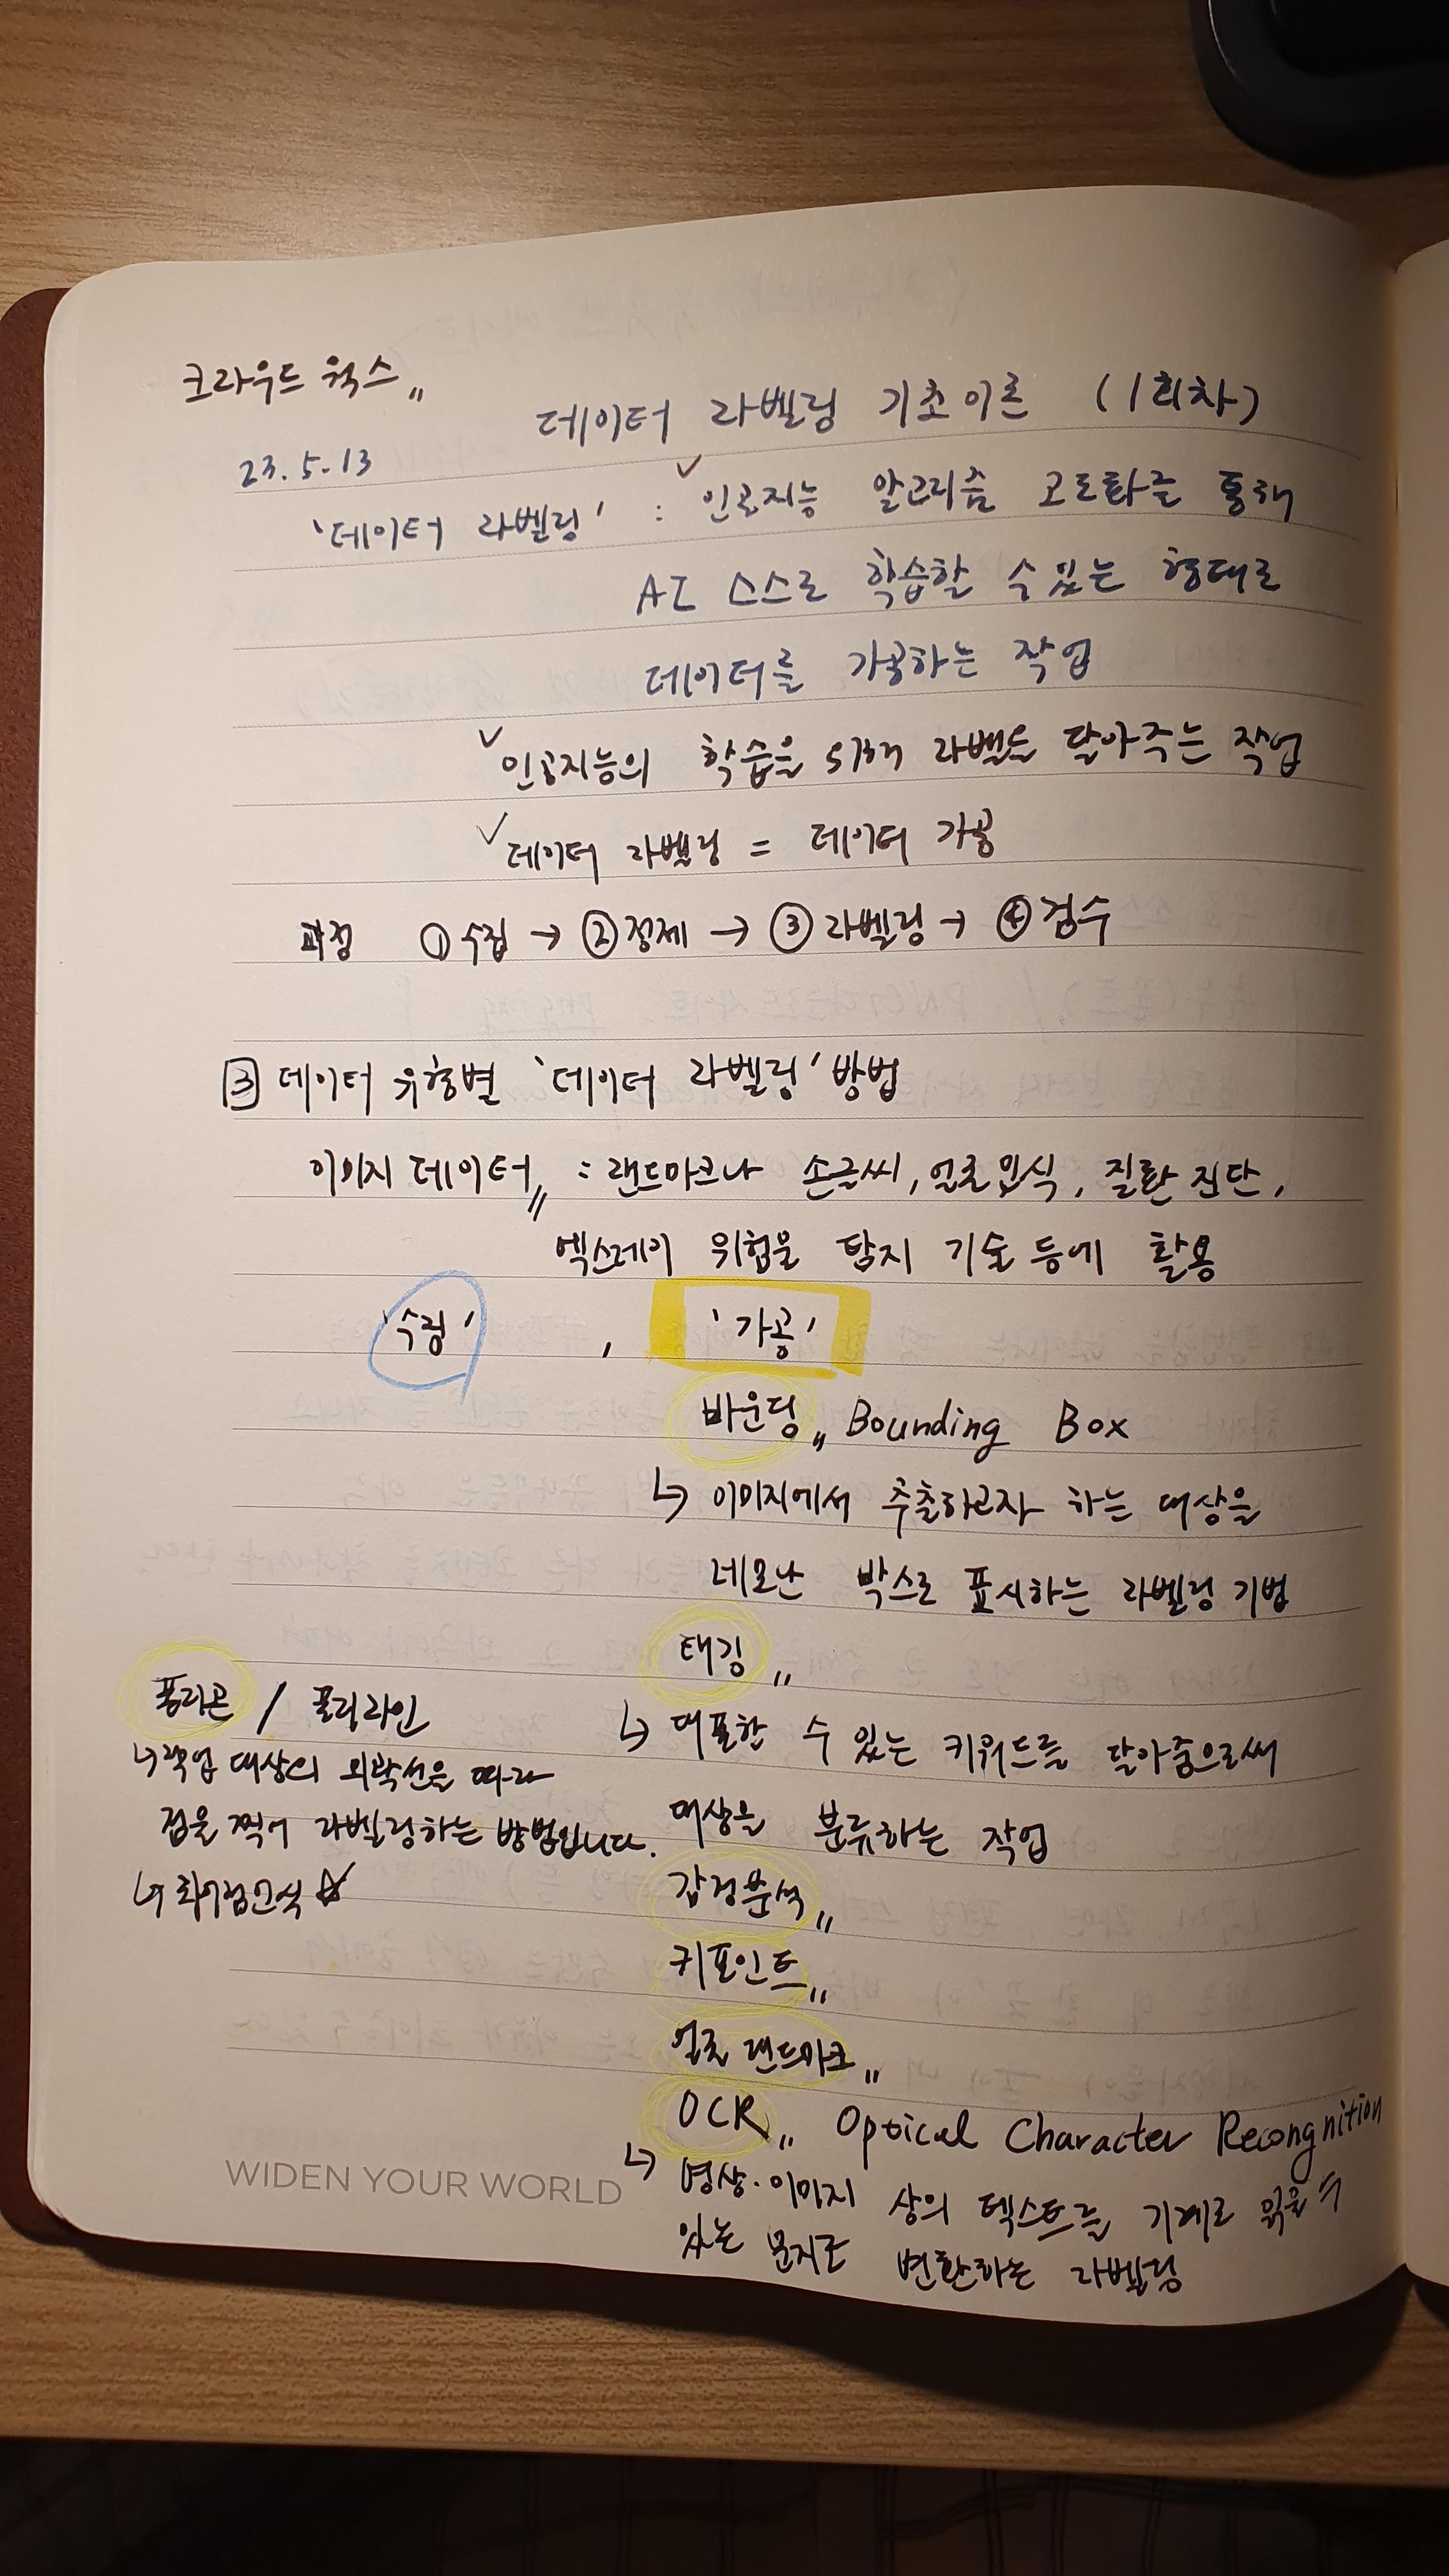 크라우드 웍스〃
데이터 라벨링 기초이론 (1회차)
23.5.13
'데이터 라벨링' : ✓인공지능 알고리즘 고도화를 통해
AI 스스로 학습할 수 있는 형태로
데이터를 가공하는 작업
✓인공지능의 학습을 위해 라벨을 달아주는 작업
✓데이터 라벨링 = 데이터 가공
과정 ①수집 → ②정제 → ③라벨링 → ④검수
3 데이터 유형별 '데이터 라벨링' 방법
이미지 데이터〃 : 랜드마크나 손글씨, 얼굴인식, 질환 진단,
엑스레이 위험물 탐지 기술 등에 활용
'수집' , '가공'
바운딩〃 Bounding Box
↳ 이미지에서 추출하고자 하는 대상을
네모난 박스로 표시하는 라벨링 기법
태깅〃
↳ 대표할 수 있는 키워드를 달아줌으로써
대상을 분류하는 작업
폴리곤 / 폴리라인
↳작업 대상의 외곽선을 따라
점을 찍어 라벨링하는 방법입니다.
↳ 차선인식 ☆
감정분석〃
키포인트〃
얼굴 랜드마크〃
OCR〃 Optical Character Recongnition
↳ 영상·이미지 상의 텍스트를 기계로 읽을 수
있는 문자로 변환하는 라벨링
WIDEN YOUR WORLD